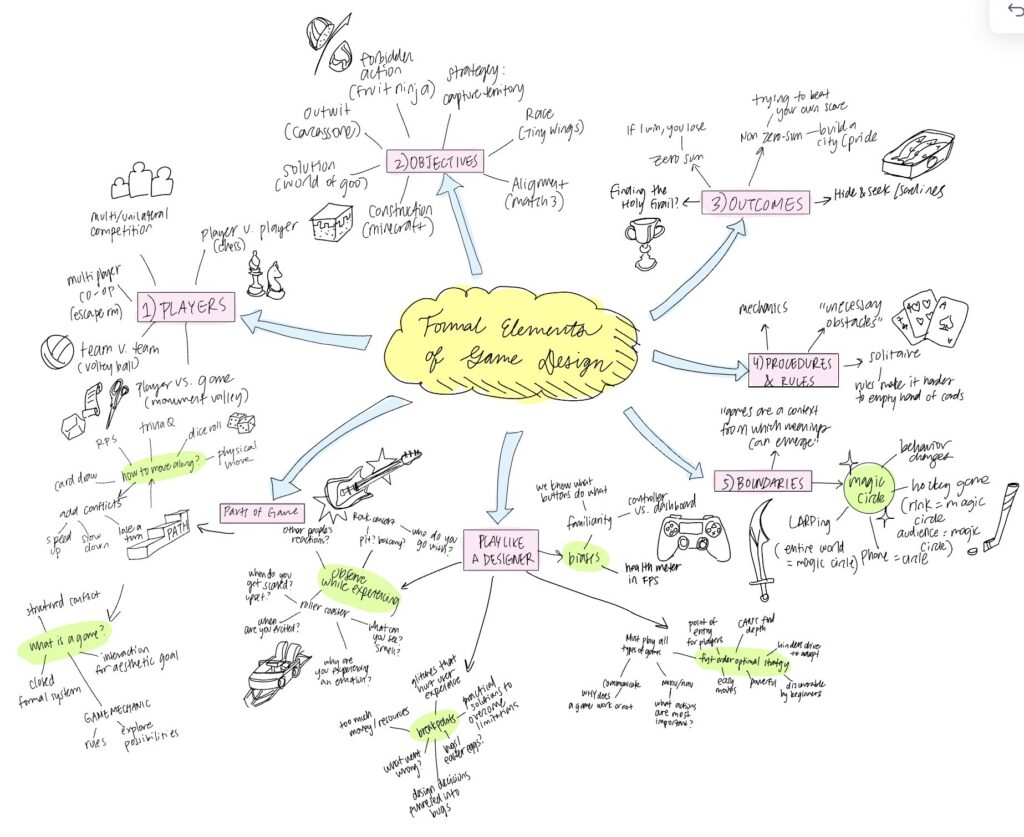 Formal Elements
of Game Design
1) PLAYERS
multi/unilateral
competition
player v. player
(chess)
multiplayer
co-op
(escape rm)
team v. team
(volley ball)
player vs. game
(monument valley)
2) OBJECTIVES
forbidden
action
(fruit ninja)
strategy:
capture territory
outwit
(carcassone)
Race
(Tiny Wings)
solution
(world of goo)
Alignment
(match 3)
construction
(minecraft)
3) OUTCOMES
If I win, you lose
zero sum
trying to beat
your own score
Non zero-sum
build a
city/pride
Finding the
Holy Grail?
Hide & seek/sardines
4) PROCEDURES
& RULES
mechanics
"unecessary
obstacles"
solitaire
rules make it harder
to empty hand of cards
5) BOUNDARIES
"games are a context
from which meaning
can emerge"
magic
circle
behavior
changes
hockey game
(rink = magic
circle
audience = magic
circle)
LARPing
(entire world
= magic circle)
Phone = circle
PLAY LIKE
A DESIGNER
biases
familiarity
we know what
buttons do what
controller
vs. dashboard
health meter
in FPS
observe
while experiencing
other people's
reactions?
Rock concert
pit? balcony?
who do you
go with?
roller coaster
when do you
get scared?
upset?
when
are you excited?
why are
you experiencing
an emotion?
what can
you see?
Smell?
breakpoints
glitches that
hurt user
experience
practical
solutions to
overcome
limitations
too much
money/resources
what went
wrong?
bugs/
easter eggs?
design decisions
turned into
bugs
Must play all
types of games
communicate
WHY does
a game work or not
menu/nav
what actions
are most
important?
first order optimal strategy
point of
entry
for players
CAN'T find
depth
hinders drive
to adapt
easy
moves
powerful
discoverable
by beginners
Parts of Game
PATH
how to move along?
RPS
trivia Q
dice roll
physical
move
card draw
add conflicts
speed
up
slow
down
lose a
turn
what is a game?
structured conflict
interaction
for aesthetic goal
closed
formal system
GAME MECHANIC
rules
explore
possibilities